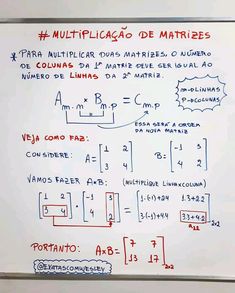 # MULTIPLICAÇÃO DE MATRIZES
* PARA MULTIPLICAR DUAS MATRIZES, O NÚMERO
DE COLUNAS DA 1ª MATRIZ DEVE SER IGUAL AO
NÚMERO DE LINHAS DA 2ª MATRIZ.
A m.n × B n.p = C m.p
m → LINHAS
p → COLUNAS
ESSA SERÁ A ORDEM
DA NOVA MATRIZ
VEJA COMO FAZ:
CONSIDERE: A = [1 2 B = [-1 3
3 4] 4 2]
VAMOS FAZER A×B: (MULTIPLIQUE LINHA×COLUNA)
[1 2 · [-1 3 = [1·(-1)+2·4 1·3+2·2
3 4] 4 2] 3·(-1)+4·4 3·3+4·2] 2×2
PORTANTO: A×B = [7 7
13 17] 2×2